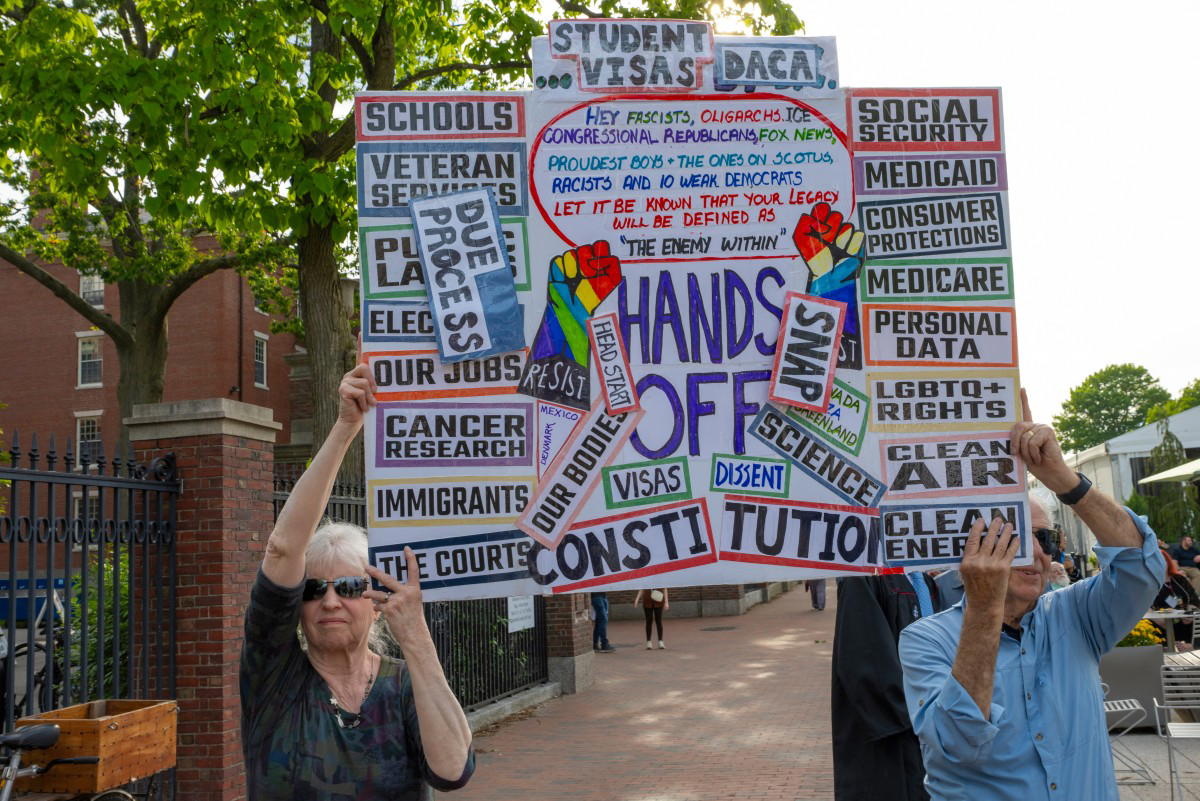 STUDENT
... VISAS DACA.
SCHOOLS
VETERAN
SERVICES
DUE
PROCESS
OUR JOBS
CANCER
RESEARCH
IMMIGRANTS
THE COURTS
HEY FASCISTS, OLIGARCHS, ICE
CONGRESSIONAL REPUBLICANS, FOX NEWS,
PROUDEST BOYS + THE ONES ON SCOTUS,
RACISTS AND 10 WEAK DEMOCRATS
LET IT BE KNOWN THAT YOUR LEGACY
WILL BE DEFINED AS
"THE ENEMY WITHIN"
HANDS
OFF
RESIST
HEAD START
MEXICO
DENMARK
OUR BODIES
SNAP
GREENLAND
SCIENCE
VISAS
DISSENT
CONSTITUTION
SOCIAL
SECURITY
MEDICAID
CONSUMER
PROTECTIONS
MEDICARE
PERSONAL
DATA
LGBTQ+
RIGHTS
CLEAN
AIR
CLEAN